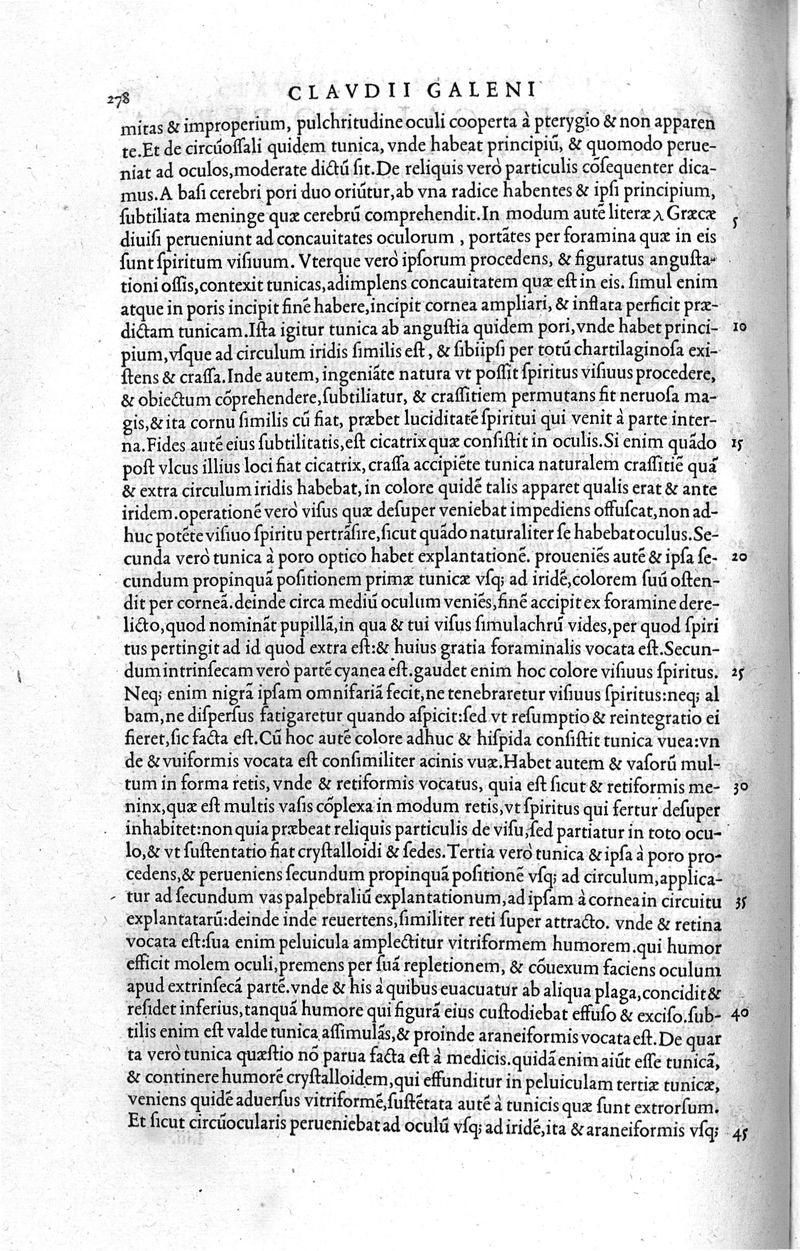 278 CLAVDII GALENI
mitas & improperium, pulchritudine oculi cooperta à pterygio & non apparen
te.Et de circũossali quidem tunica, vnde habeat principiũ, & quomodo perue-
niat ad oculos,moderate dictũ sit.De reliquis verò particulis cõsequenter dica-
mus.A basi cerebri pori duo oriũtur,ab vna radice habentes & ipsi principium,
subtiliata meninge quæ cerebrũ comprehendit.In modum autẽ literæ λ Græcæ
diuisi perueniunt ad concauitates oculorum , portãtes per foramina quæ in eis 5
sunt spiritum visiuum. Vterque verò ipsorum procedens, & figuratus angusta-
tioni ossis,contexit tunicas,adimplens concauitatem quæ est in eis. simul enim
atque in poris incipit finẽ habere,incipit cornea ampliari, & inflata perficit præ-
dictam tunicam.Ista igitur tunica ab angustia quidem pori,vnde habet princi- 10
pium,vsque ad circulum iridis similis est, & sibiipsi per totũ chartilaginosa exi-
stens & crassa.Inde autem, ingeniãte natura vt possit spiritus visiuus procedere,
& obiectum cõprehendere,subtiliatur, & crassitiem permutans fit neruosa ma-
gis,& ita cornu similis cũ fiat, præbet luciditatẽ spiritui qui venit à parte inter-
na.Fides autẽ eius subtilitatis,est cicatrix quæ consistit in oculis.Si enim quãdo 15
post vlcus illius loci fiat cicatrix, crassa accipiẽte tunica naturalem crassitiẽ quã
& extra circulum iridis habebat, in colore quidẽ talis apparet qualis erat & ante
iridem.operationẽ verò visus quæ desuper veniebat impediens offuscat,non ad-
huc potẽte visiuo spiritu pertrãsire,sicut quãdo naturaliter se habebat oculus.Se-
cunda verò tunica à poro optico habet explantationẽ. proueniẽs autẽ & ipsa se- 20
cundum propinquã positionem primæ tunicæ vsq; ad iridẽ,colorem suũ osten-
dit per corneã.deinde circa mediũ oculum veniẽs,finẽ accipit ex foramine dere-
licto,quod nominãt pupillã,in qua & tui visus simulachrũ vides,per quod spiri
tus pertingit ad id quod extra est:& huius gratia foraminalis vocata est.Secun-
dum intrinsecam verò partẽ cyanea est.gaudet enim hoc colore visiuus spiritus. 25
Neq; enim nigrã ipsam omnifariã fecit,ne tenebraretur visiuus spiritus:neq; al
bam,ne dispersus fatigaretur quando aspicit:sed vt resumptio & reintegratio ei
fieret,sic facta est.Cũ hoc autẽ colore adhuc & hispida consistit tunica vuea:vn
de & vuiformis vocata est consimiliter acinis vuæ.Habet autem & vasorũ mul-
tum in forma retis, vnde & retiformis vocatus, quia est sicut & retiformis me- 30
ninx,quæ est multis vasis cõplexa in modum retis,vt spiritus qui fertur desuper
inhabitet:non quia præbeat reliquis particulis de visu,sed partiatur in toto ocu-
lo,& vt sustentatio fiat crystalloidi & sedes.Tertia verò tunica & ipsa à poro pro-
cedens,& perueniens secundum propinquã positionẽ vsq; ad circulum,applica-
tur ad secundum vas palpebraliũ explantationum,ad ipsam à cornea in circuitu 35
explantatarũ:deinde inde reuertens,similiter reti super attracto. vnde & retina
vocata est:sua enim peluicula amplectitur vitriformem humorem.qui humor
efficit molem oculi,premens per suã repletionem, & cõuexum faciens oculum
apud extrinsecã partẽ.vnde & his à quibus euacuatur ab aliqua plaga,concidit &
residet inferius,tanquã humore qui figurã eius custodiebat effuso & exciso.sub- 40
tilis enim est valde tunica assimulãs,& proinde araneiformis vocata est.De quar
ta verò tunica quæstio nõ parua facta est à medicis.quidã enim aiũt esse tunicã,
& continere humorẽ crystalloidem,qui effunditur in peluiculam tertiæ tunicæ,
veniens quidẽ aduersus vitriformẽ,sustẽtata autẽ à tunicis quæ sunt extrorsum.
Et sicut circũocularis perueniebat ad oculũ vsq; ad iridẽ,ita & araneiformis vsq; 45